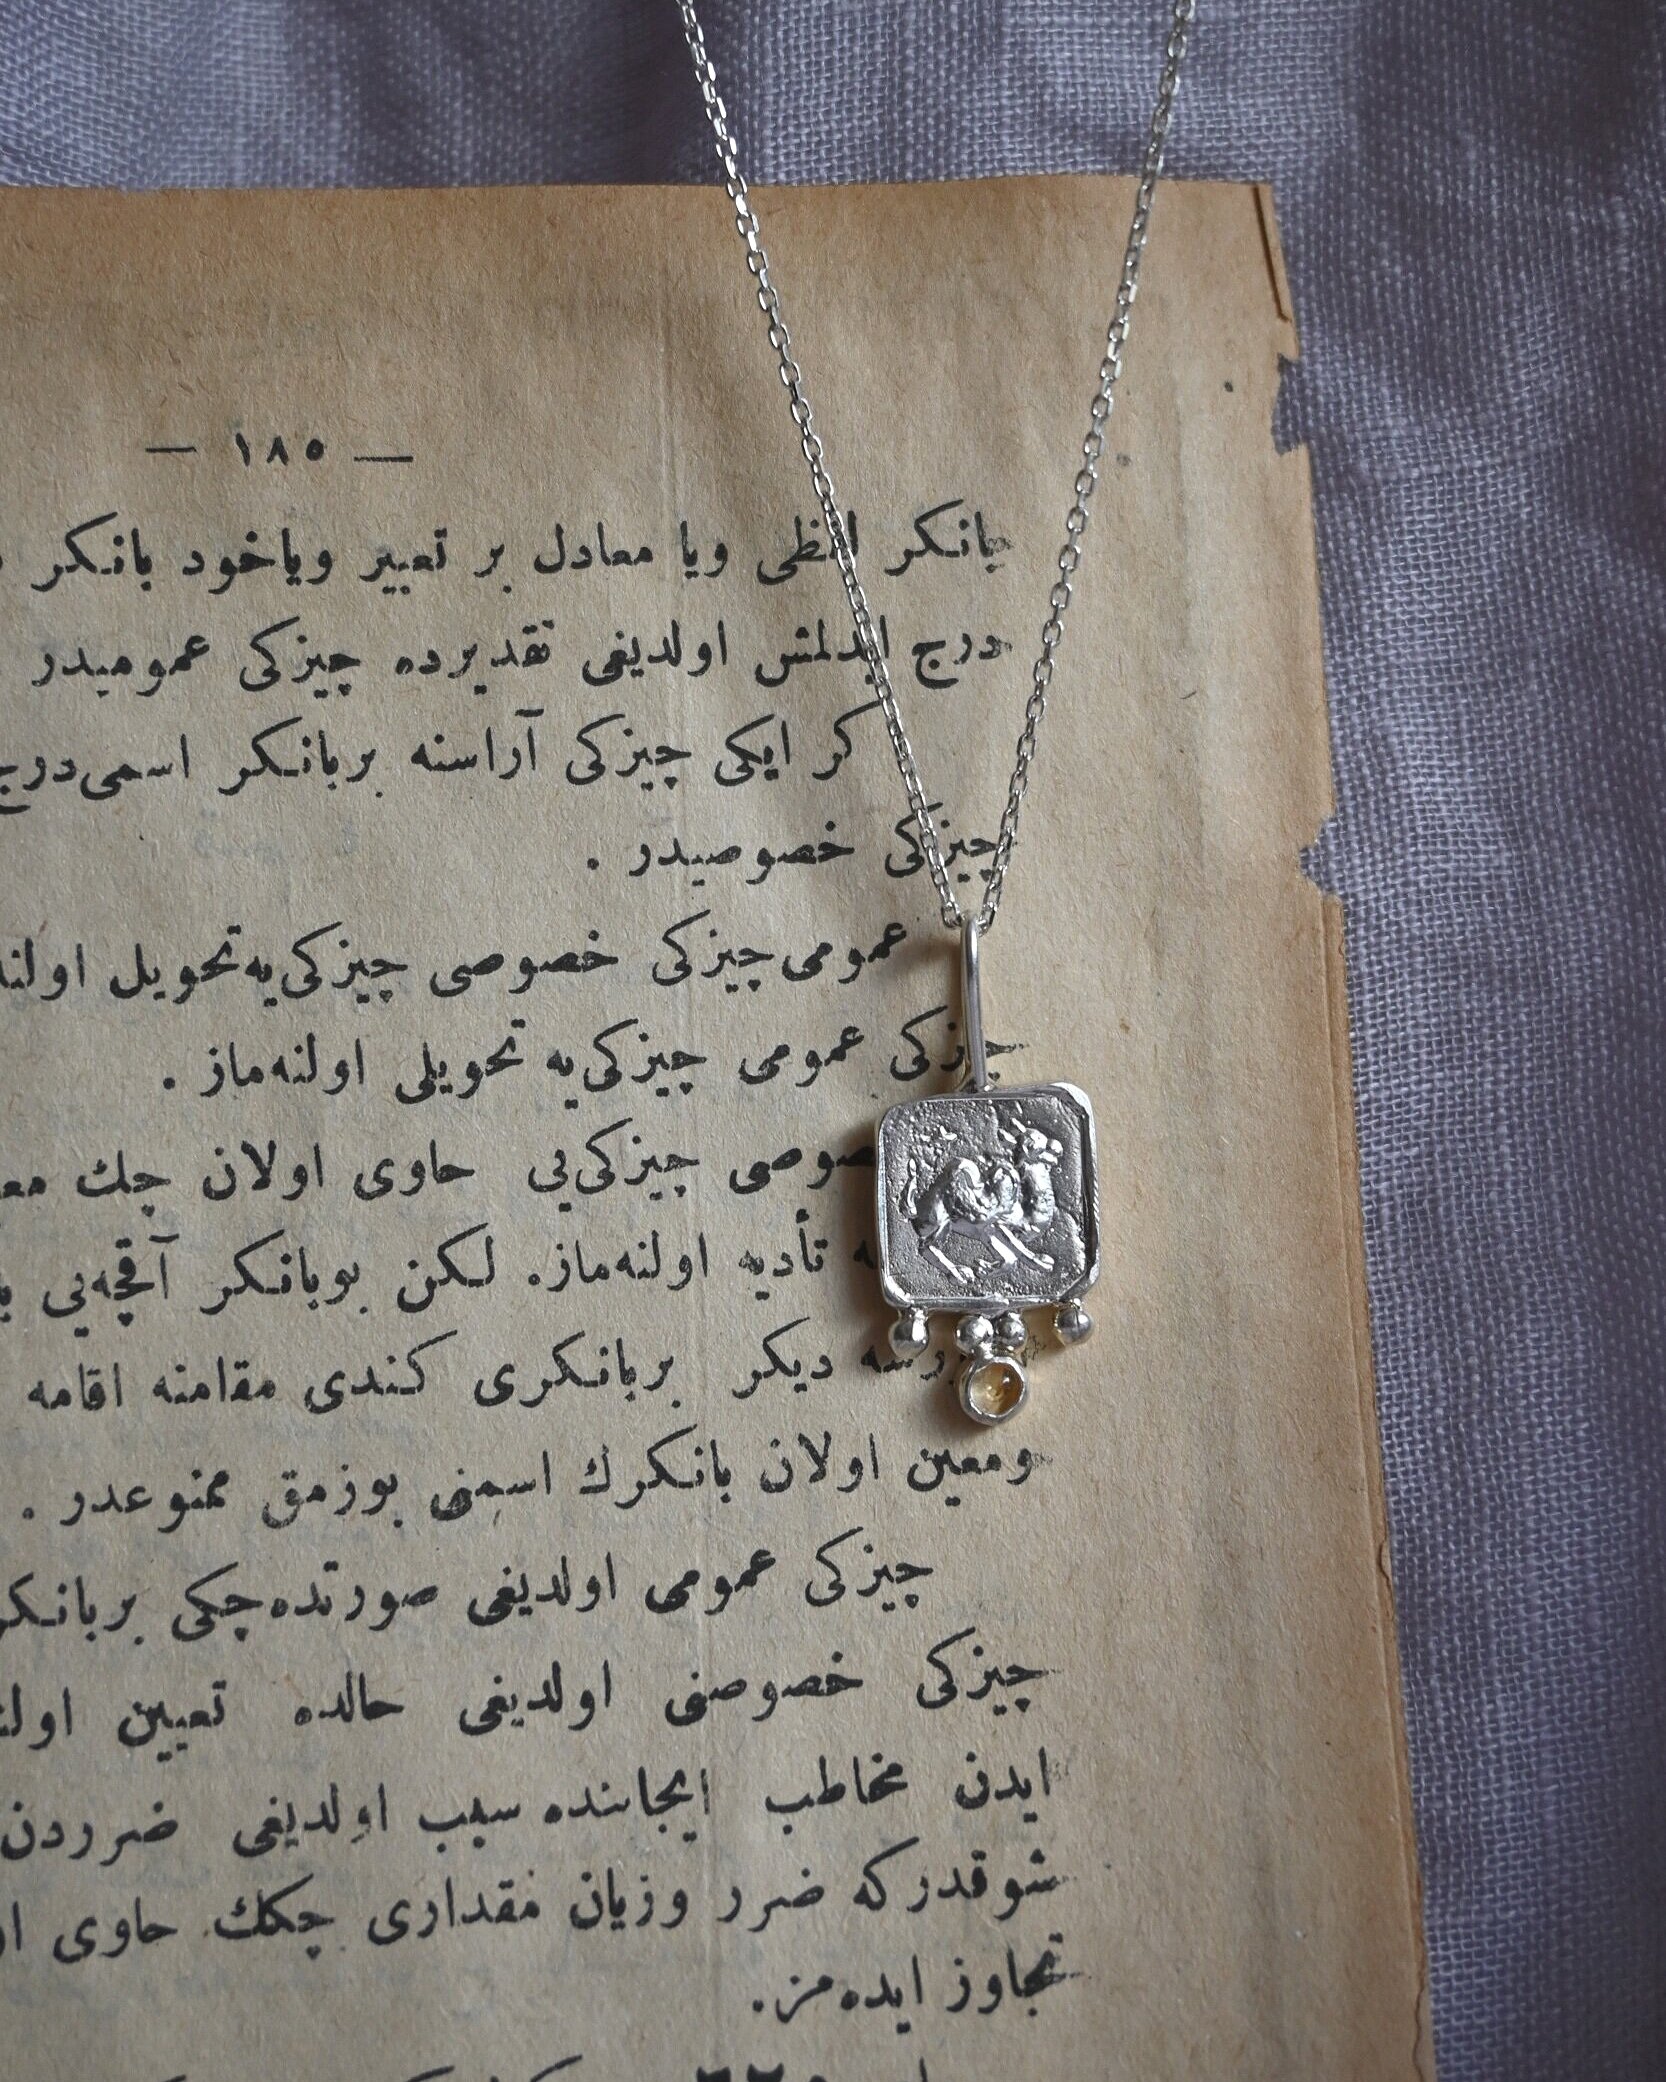 — ١٨٥ —
بانكر لفظی ویا معادل بر تعبیر ویاخود بانكر
درج ایدلمش اولدیغی تقدیرده چیزكی عمومیدر
كر ایكی چیزكی آراسنه بربانكر اسمی درج
چیزكی خصوصیدر .
عمومی چیزكی خصوصی چیزكی‌یه تحویل
چیزكی عمومی چیزكی‌یه تحویلی اولنه‌ماز .
چیزكی‌یی حاوی اولان چك
تأدیه اولنه‌ماز. لكن بوبانكر آقچه‌یی
دیكر بربانكری كندی مقامنه اقامه
ومعین اولان بانكرك اسمنی بوزمق ممنوعدر .
چیزكی عمومی اولدیغی صورتده چكی بربانكر
چیزكی خصوصی اولدیغی حالده تعیین
ایدن مخاطب ایجابنده سبب اولدیغی ضرردن
شوقدركه ضرر وزیان مقداری چكك حاوی
تجاوز ایده‌مز.